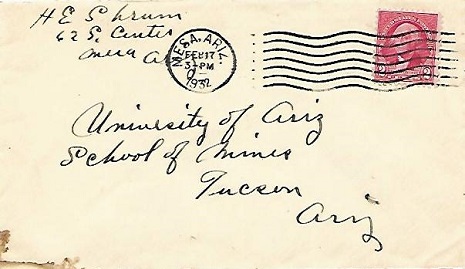 H E Schrum
62 S. Center
Mesa A
MESA, ARIZ.
FEB 17
3-PM
1932
2
University of Ariz
School of Mines
Tucson
Ariz